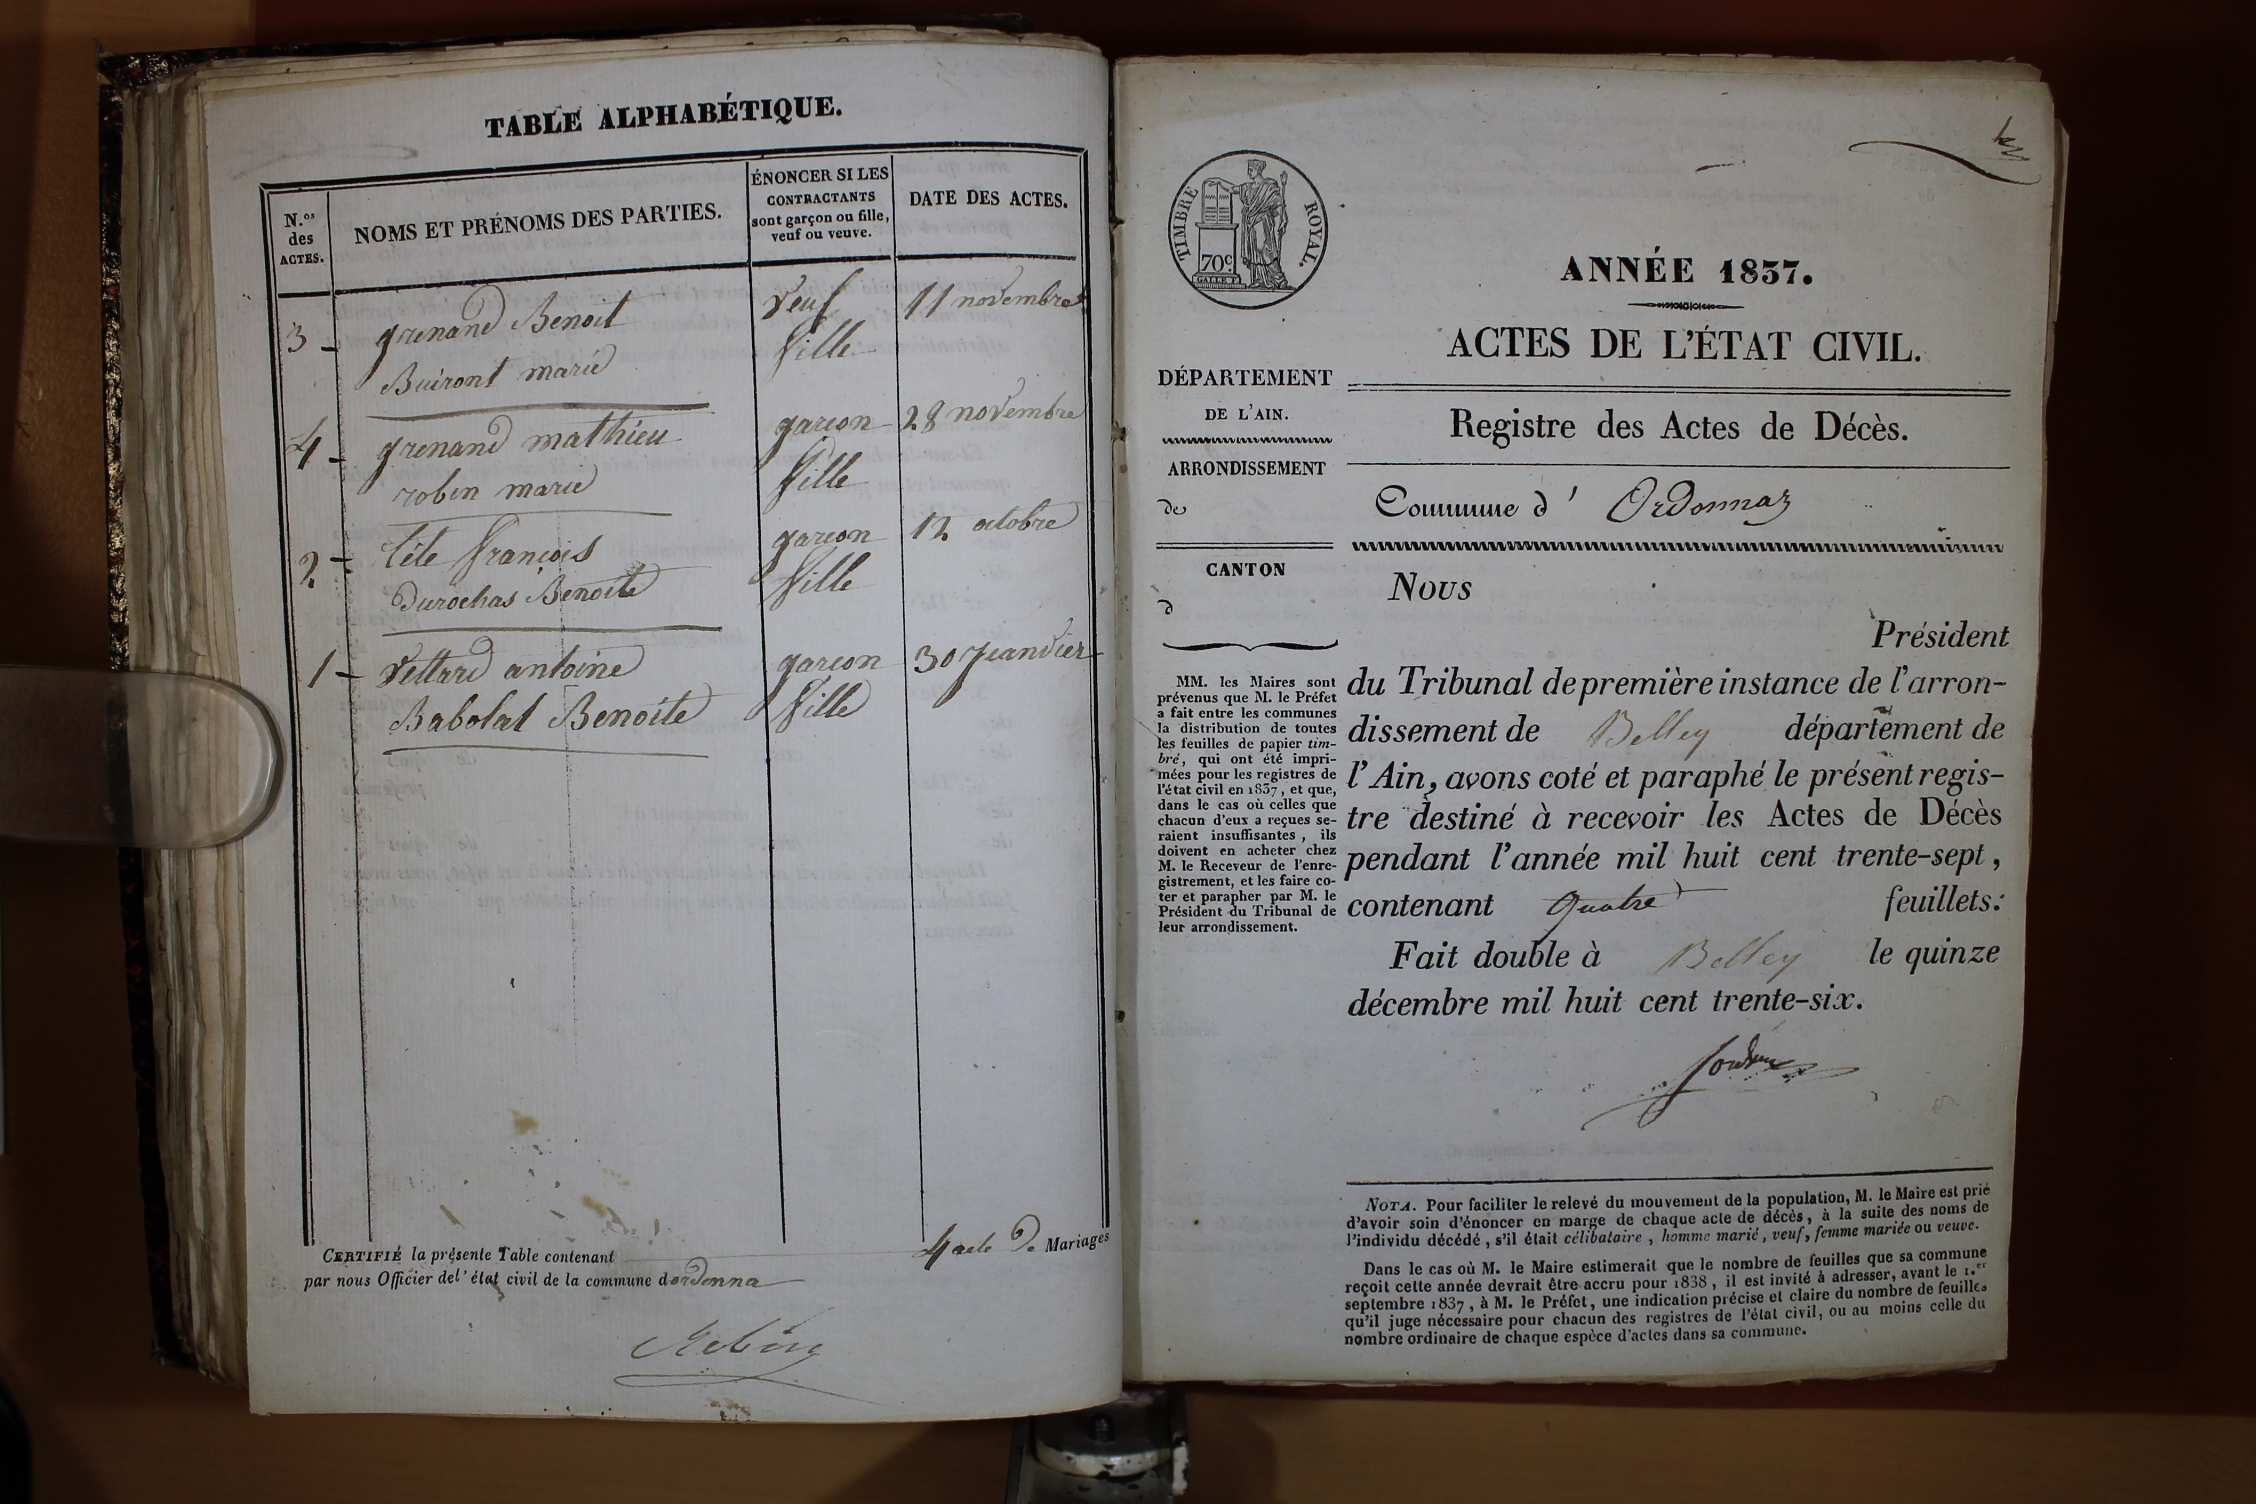 TABLE ALPHABÉTIQUE.
N.os des ACTES.
NOMS ET PRÉNOMS DES PARTIES.
ÉNONCER SI LES
CONTRACTANTS
sont garçon ou fille,
veuf ou veuve.
DATE DES ACTES.
3 - grenand Benoit veuf 11 novembre
Buiront marie fille
4 - grenand mathieu garcon 28 novembre
robin marie fille
2 - tête françois garcon 12 octobre
durochas Benoite fille
1 - vettard antoine garcon 30 Jeanvier
Babolat Benoite fille
CERTIFIÉ la présente Table contenant 4 acte de Mariages
par nous Officier de l'état civil de la commune dordonna
TIMBRE ROYAL.
70c.
ANNÉE 1837.
ACTES DE L'ÉTAT CIVIL.
DÉPARTEMENT
DE L'AIN.
ARRONDISSEMENT
de
CANTON
d
MM. les Maires sont
prévenus que M. le Préfet
a fait entre les communes
la distribution de toutes
les feuilles de papier tim-
bré, qui ont été impri-
mées pour les registres de
l'état civil en 1837, et que,
dans le cas où celles que
chacun d'eux a reçues se-
raient insuffisantes, ils
doivent en acheter chez
M. le Receveur de l'enre-
gistrement, et les faire co-
ter et parapher par M. le
Président du Tribunal de
leur arrondissement.
Registre des Actes de Décès.
Commune d' Ordonnaz
Nous
Président
du Tribunal de première instance de l'arron-
dissement de Belley département de
l'Ain, avons coté et paraphé le présent regis-
tre destiné à recevoir les Actes de Décès
pendant l'année mil huit cent trente-sept,
contenant quatre feuillets:
Fait double à Belley le quinze
décembre mil huit cent trente-six.
NOTA. Pour faciliter le relevé du mouvement de la population, M. le Maire est prié
d'avoir soin d'énoncer en marge de chaque acte de décès, à la suite des noms de
l'individu décédé, s'il était célibataire, homme marié, veuf, femme mariée ou veuve.
Dans le cas où M. le Maire estimerait que le nombre de feuilles que sa commune
reçoit cette année devrait être accru pour 1838, il est invité à adresser, avant le 1.er
septembre 1837, à M. le Préfet, une indication précise et claire du nombre de feuilles
qu'il juge nécessaire pour chacun des registres de l'état civil, ou au moins celle du
nombre ordinaire de chaque espèce d'actes dans sa commune.